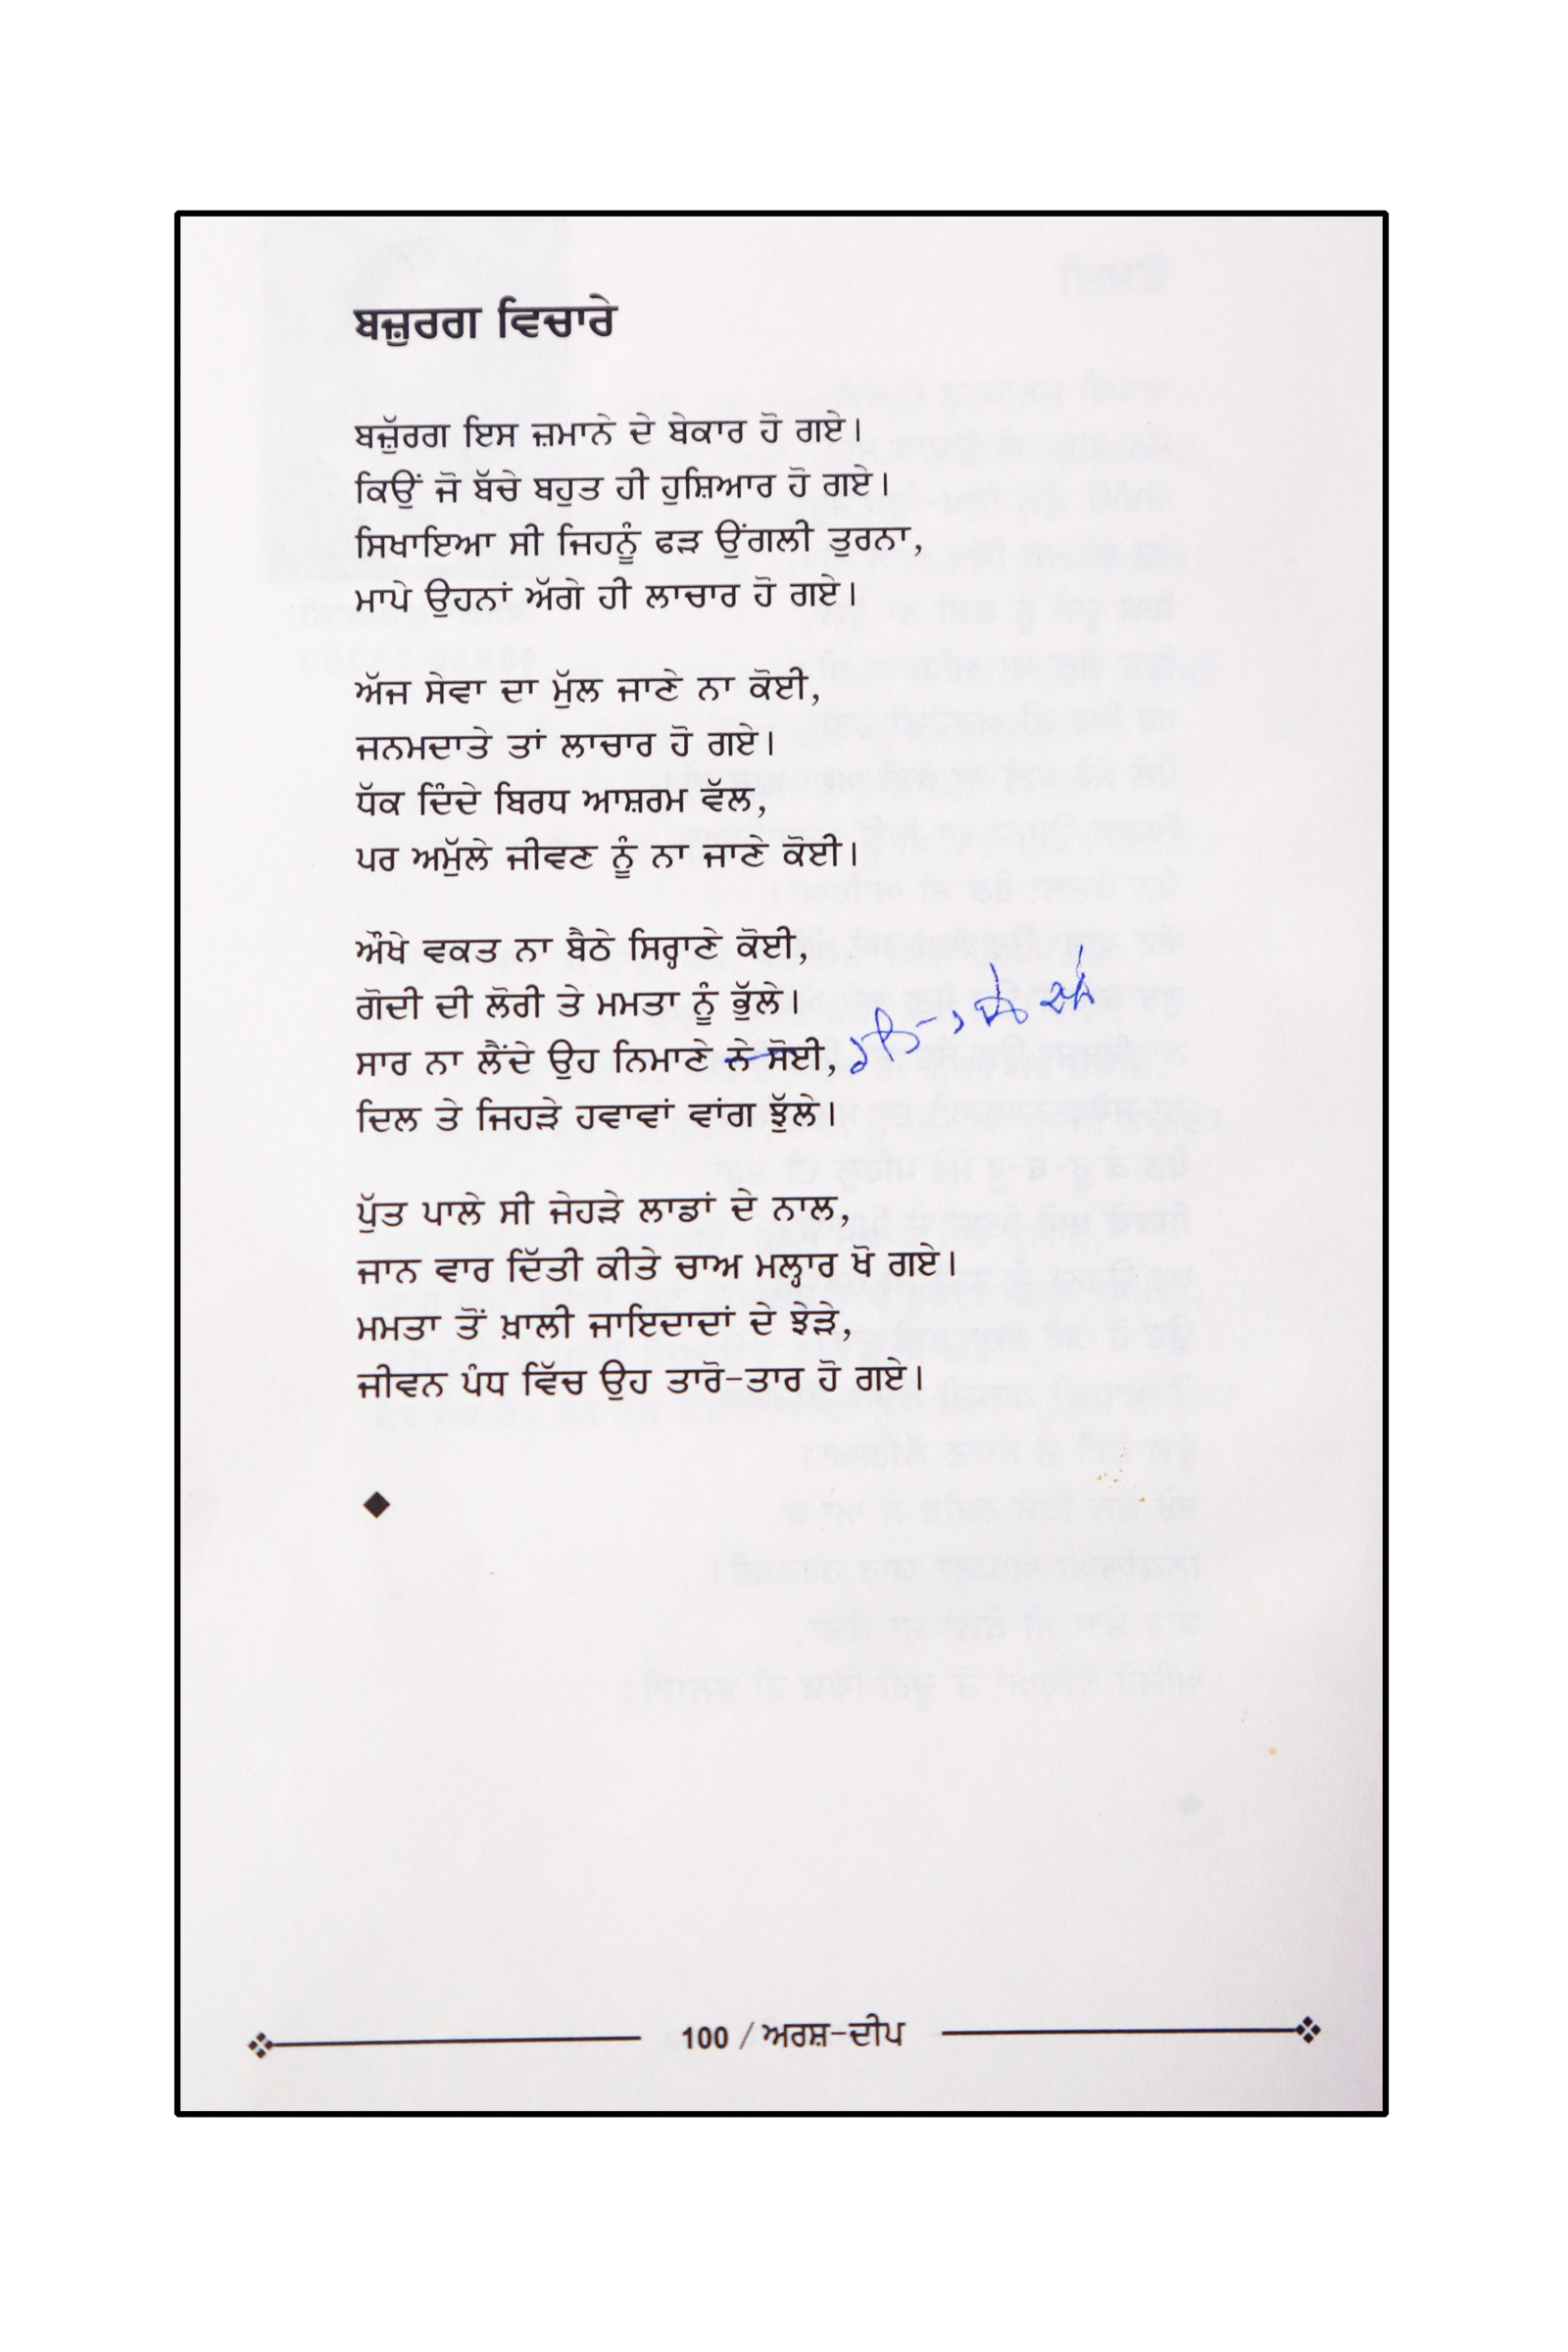 ਬਜ਼ੁਰਗ ਵਿਚਾਰੇ
ਬਜ਼ੁੱਰਗ ਇਸ ਜ਼ਮਾਨੇ ਦੇ ਬੇਕਾਰ ਹੋ ਗਏ।
ਕਿਉਂ ਜੋ ਬੱਚੇ ਬਹੁਤ ਹੀ ਹੁਸ਼ਿਆਰ ਹੋ ਗਏ।
ਸਿਖਾਇਆ ਸੀ ਜਿਹਨੂੰ ਫੜ ਉਂਗਲੀ ਤੁਰਨਾ,
ਮਾਪੇ ਉਹਨਾਂ ਅੱਗੇ ਹੀ ਲਾਚਾਰ ਹੋ ਗਏ।
ਅੱਜ ਸੇਵਾ ਦਾ ਮੁੱਲ ਜਾਣੇ ਨਾ ਕੋਈ,
ਜਨਮਦਾਤੇ ਤਾਂ ਲਾਚਾਰ ਹੋ ਗਏ।
ਧੱਕ ਦਿੰਦੇ ਬਿਰਧ ਆਸ਼ਰਮ ਵੱਲ,
ਪਰ ਅਮੁੱਲੇ ਜੀਵਣ ਨੂੰ ਨਾ ਜਾਣੇ ਕੋਈ।
ਔਖੇ ਵਕਤ ਨਾ ਬੈਠੇ ਸਿਰ੍ਹਾਣੇ ਕੋਈ,
ਗੋਦੀ ਦੀ ਲੋਰੀ ਤੇ ਮਮਤਾ ਨੂੰ ਭੁੱਲੇ।
ਸਾਰ ਨਾ ਲੈਂਦੇ ਉਹ ਨਿਮਾਣੇ ਨੇ ਸੋਈ,
ਦਿਲ ਤੇ ਜਿਹੜੇ ਹਵਾਵਾਂ ਵਾਂਗ ਝੁੱਲੇ।
ਪੁੱਤ ਪਾਲੇ ਸੀ ਜੇਹੜੇ ਲਾਡਾਂ ਦੇ ਨਾਲ,
ਜਾਨ ਵਾਰ ਦਿੱਤੀ ਕੀਤੇ ਚਾਅ ਮਲ੍ਹਾਰ ਖੋ ਗਏ।
ਮਮਤਾ ਤੋਂ ਖ਼ਾਲੀ ਜਾਇਦਾਦਾਂ ਦੇ ਝੇੜੇ,
ਜੀਵਨ ਪੰਧ ਵਿੱਚ ਉਹ ਤਾਰੋ-ਤਾਰ ਹੋ ਗਏ।
100 / ਅਰਸ਼-ਦੀਪ